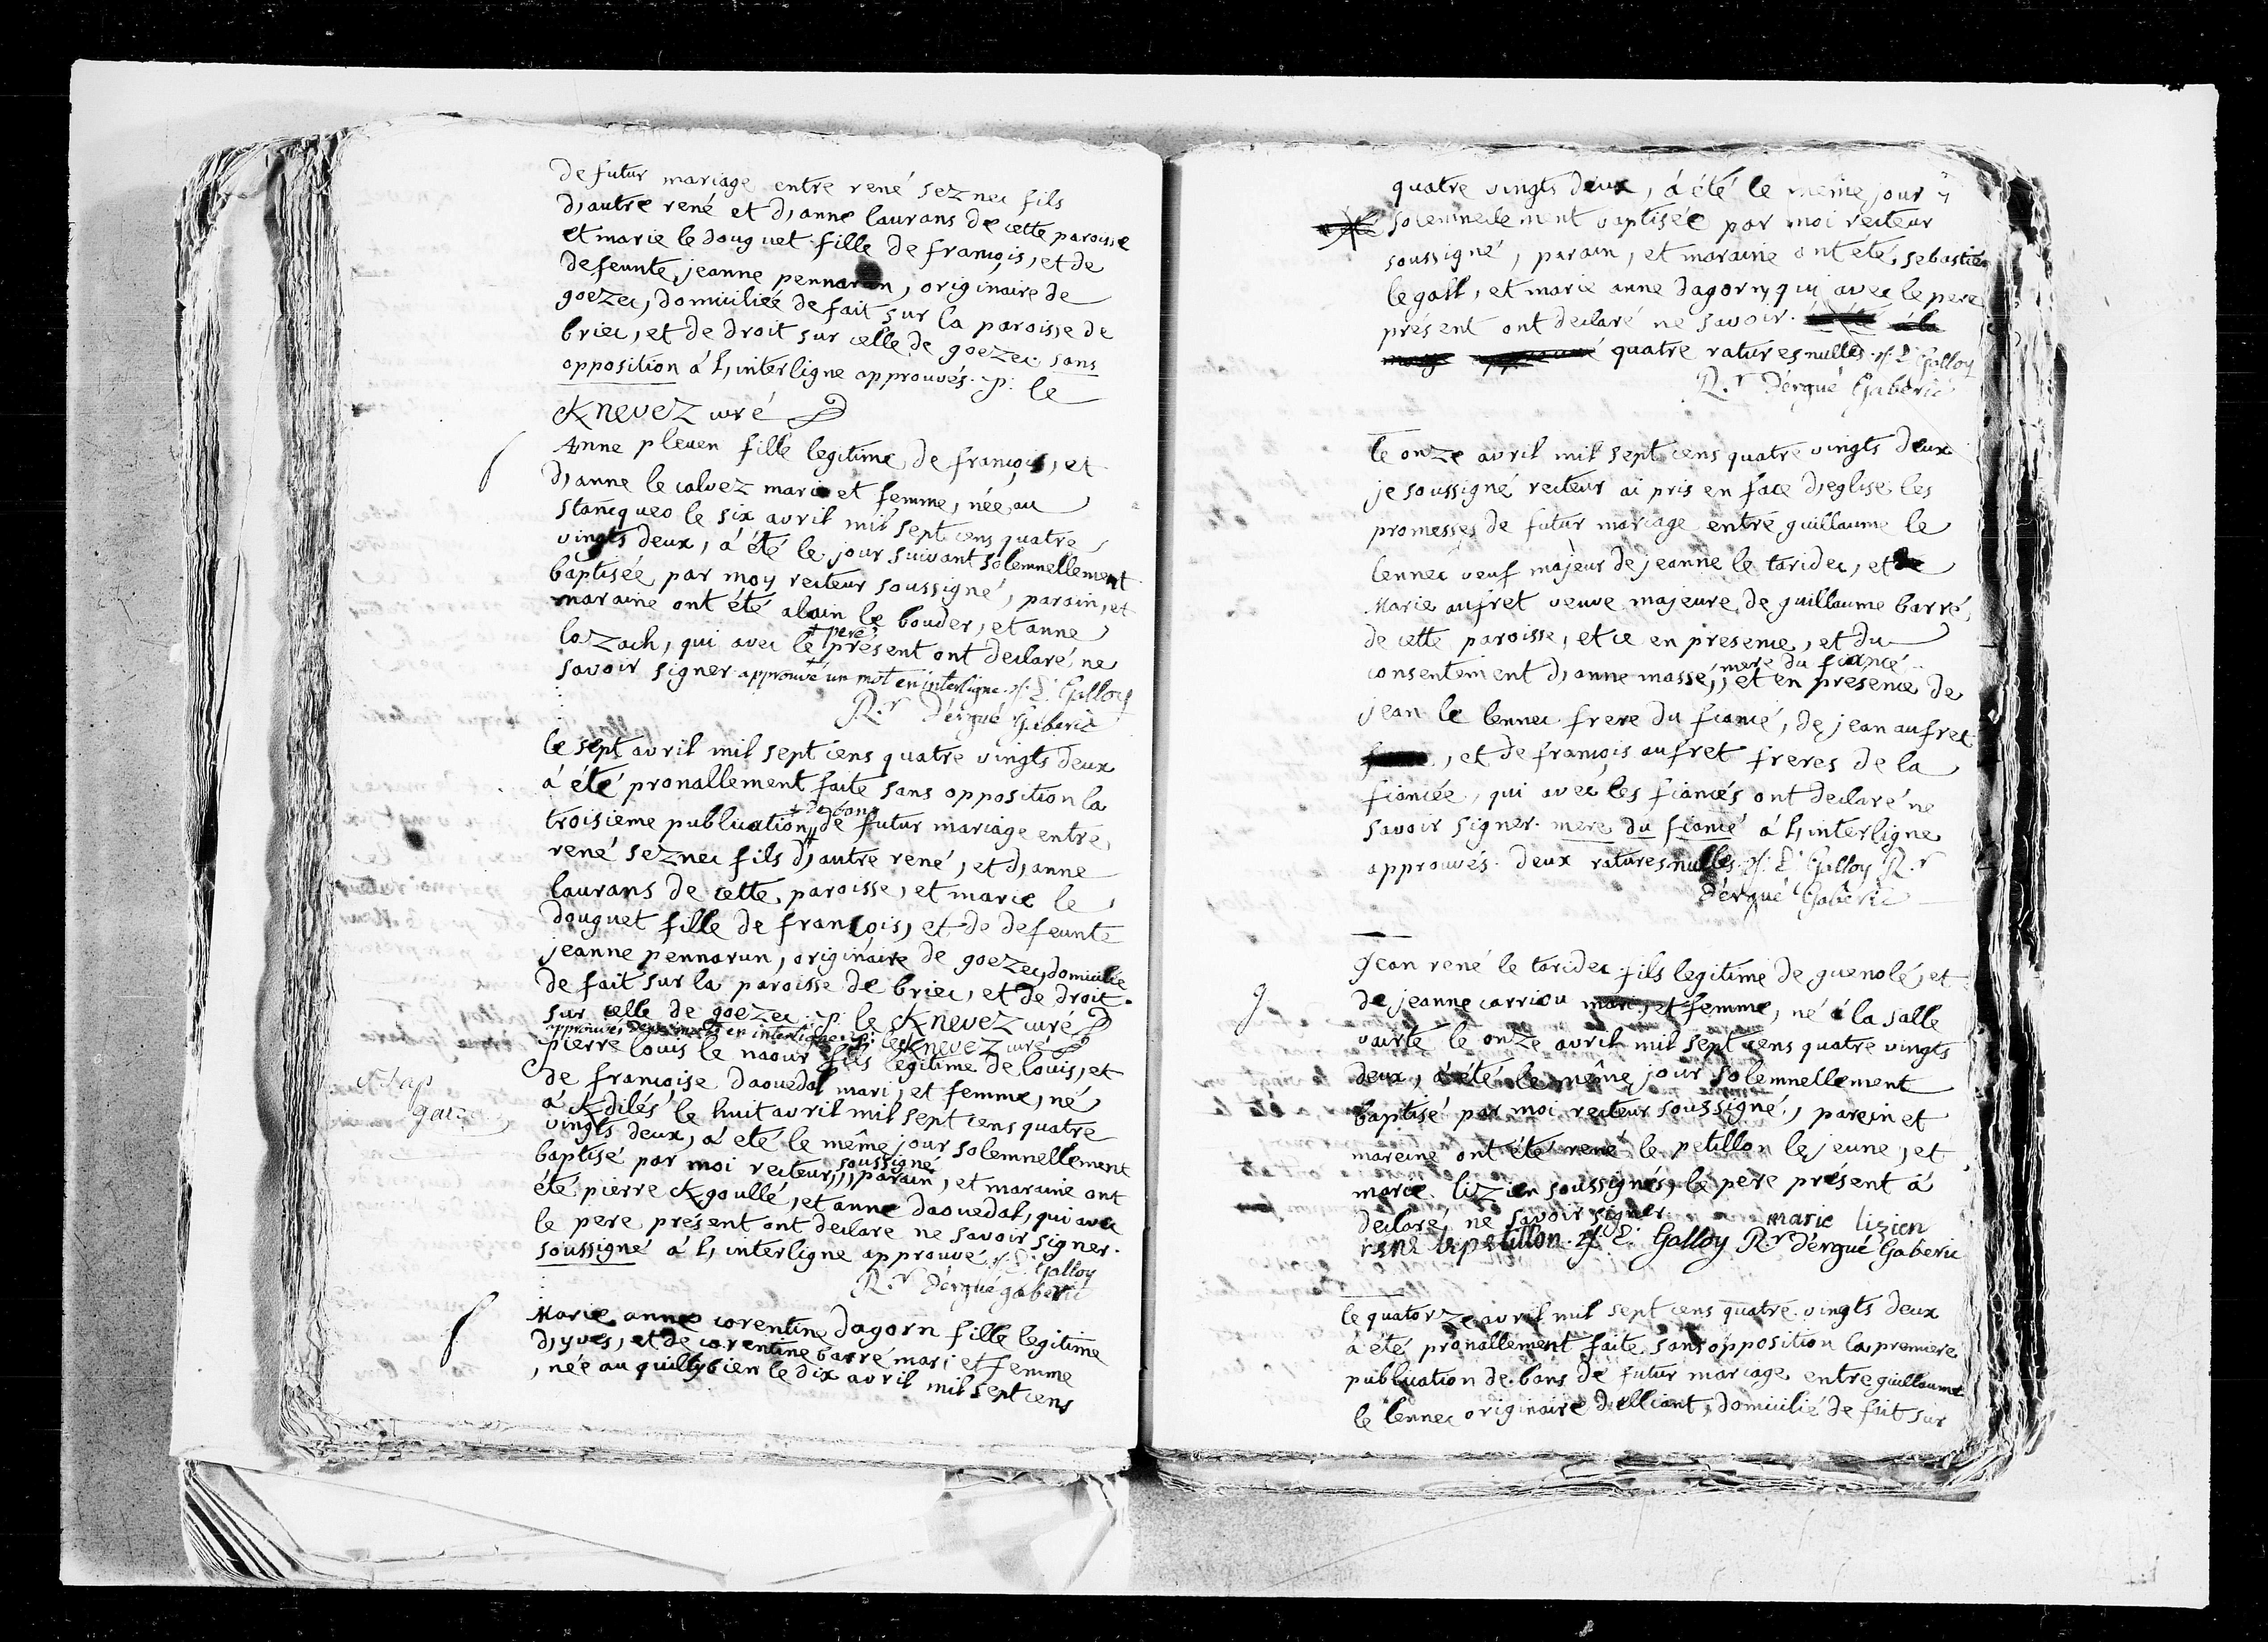 de futur mariage entre rené seznec fils
d,autre rené et d,anne laurans de cette paroisse
et marie le douguet fille de françois, et de
defeunte jeanne pennarun, originaire de
goezec, domiciliée de fait sur la paroisse de
briec, et de droit sur celle de goezec sans
opposition á l,interligne approuvés. p: le
Knevez curé
Anne pleven fille legitime de françois, et
d,anne le calvez mari et femme, née au
stancqueo le six avril mil sept cens quatre
vingts deux, á été le jour suivant solemnellement
baptisée par moy recteur soussigné, parain, et
maraine ont été alain le bouder, et anne
lozach, qui avec le + pere + présent ont declaré ne
savoir signer. approuvé un mot en interligne. Galloy
R.r d'ergué Gaberic
le sept avril mil sept cens quatre vingts deux
á été pronallement faite sans opposition la
troisieme publication + de bans de futur mariage entre
rené seznec fils d,autre rené, et d,anne
laurans de cette paroisse, et marie le
douguet fille de françois, et de defeunte
jeanne pennarun, originaire de goezec, domiciliée
de fait sur la paroisse de briec, et de droit
sur celle de goezec. p: le Knevez curé
approuvés deux mots en interligne. p: le Knevez curé
pierre louis le naour fils legitime de louis, et
de françoise daouedal mari, et femme, né
á Kdilés le huit avril mil sept cens quatre
vingts deux, á eté le même jour solemnellement
baptisé par moi recteur, soussigné, parain, et maraine ont
été pierre Kgoullé, et anne daouedal, qui avec
le pere présent ont declare ne savoir signer.
soussigné á l, interligne approuvé. Galloy
R.r d'ergué gaberic
Marie anne corentine dagorn fille legitime
d,yves, et de corentine barré mari et femme
, née au quillybien le dix avril mil sept cens
quatre vingts deux, á été le même jour
solemnellement baptisée par moi recteur
soussigné, parain, et maraine ont été, sebastien
le gall, et marie anne dagorn, qui avec le pere
présent ont declaré ne savoir.
quatre ratures nulles. Galloy
R.r d'ergué Gaberic
le onze avril mil sept cens quatre vingts deux
je soussigné recteur ai pris en face d,eglise les
promesses de futur mariage entre guillaume le
lennec veuf majeur de jeanne le taridec, et
Marie aufret veuve majeure de guillaume barré,
de cette paroisse, et ce en presence, et du
consentement d,anne massé, mere du fiancé, et en présence de
jean le lennec frere du fiancé, de jean aufret
, et de françois aufret freres de la
fiancée, qui avec les fiancés ont declaré ne
savoir signer. mere du fiancé á l,interligne
approuvés. deux ratures nulles. Galloy R.r
d'ergué Gaberic
Jean rené le taridec fils legitime de guenolé, et
de jeanne carriou mari, et femme, né á la salle
vairte le onze avril mil sept cens quatre vingts
deux, á été le même jour solemnellement
baptisé par moi recteur soussigné, parein et
mareine ont été rené le petillon le jeune, et
marie lizien soussignés, le pere présent á
declaré ne savoir signer. marie lizien
rené le petillon. Galloy Rr d'ergué Gaberic
le quatorze avril mil sept cens quatre vingts deux
á été pronallement faite sans opposition la premiere
publication de bans de futur mariage entre guillaume
le lennec originaire d,elliant, domicilié de fait sur